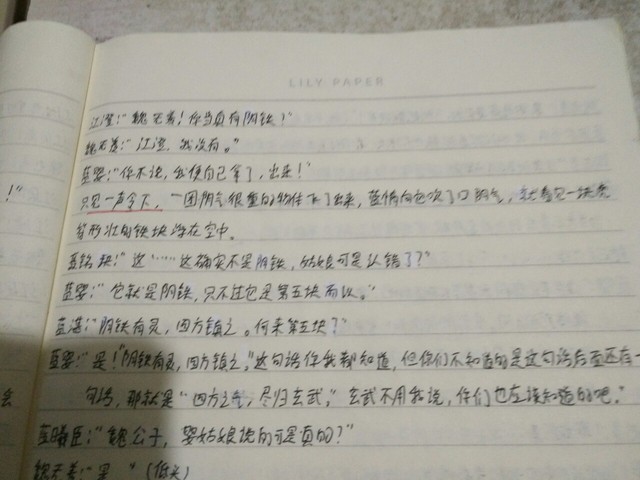 LILY PAPER
江澄:“魏无羡!你当真有阴铁?”
魏无羡:“江澄,我没有。”
蓝婴:“你不说,我便自己拿了,出来!”
!”
只见一声令下,一团阴气很重的物体飞了出来,蓝倩向它吹了口阴气,就看见一块
形状的铁块浮在空中。
蓝铭玦:“这……这确实不是阴铁,姑娘可是认错了?”
蓝婴:“它就是阴铁,只不过它是第五块而以。”
蓝湛:“阴铁有灵,四方镇之。何来第五块?”
蓝婴:“是!“阴铁有灵,四方镇之,”这句话你我都知道,但你们不知道的是这句话后面还有一
句话,那就是“四方之气,尽归玄武,”玄武不用我说,你们也应该知道的吧。”
会
蓝曦臣:“魏公子,婴姑娘说的可是真的?”
魏无羡:“是。”(低头)